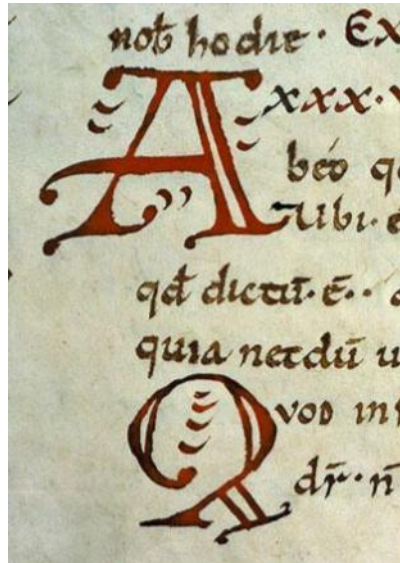 nob̄ hodie · EX
A xxx·v
beo q
Aibi·e
qd̄ dictū·ē·· a
quia necdū u
QVOD in
dr̄·n̄